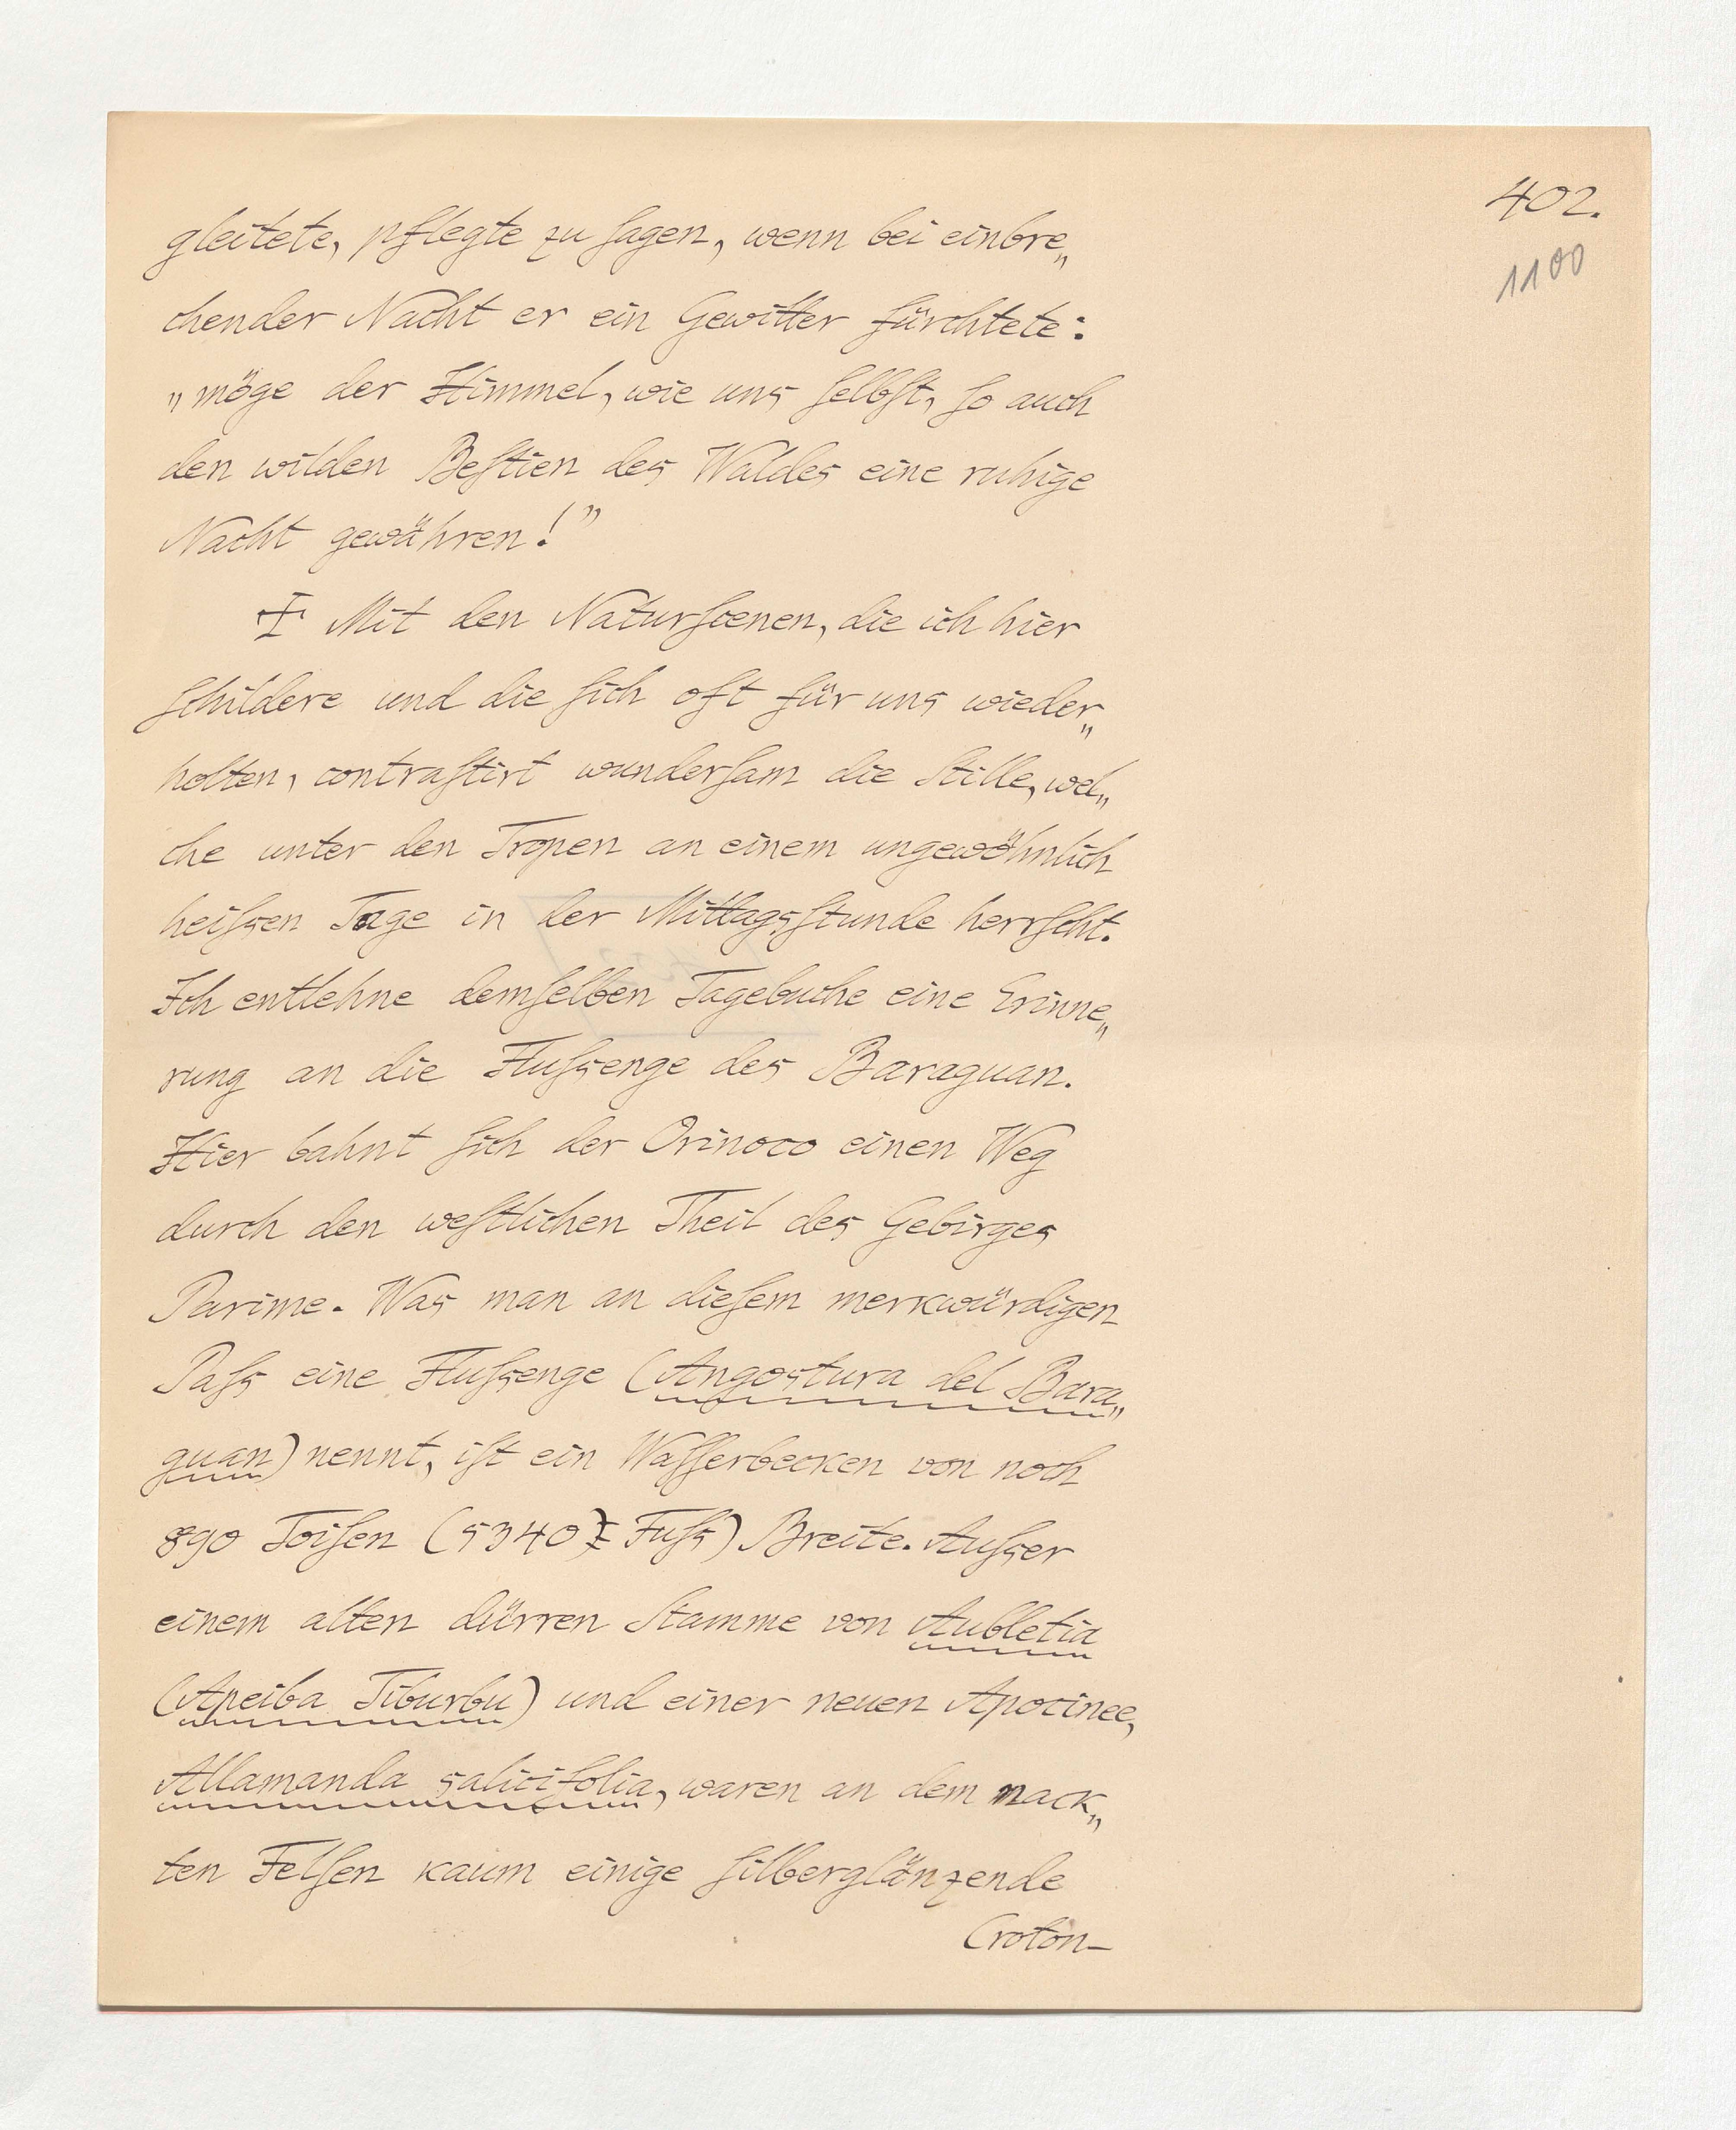 402.
1100
gleitete, pflegte zu ſagen, wenn bei einbre„
chender Nacht er ein Gewitter fürchtete:
„möge der Himmel, wie uns ſelbſt, ſo auch
den wilden Beſtien des Waldes eine ruhige
Nacht gewähren!”
Mit den Naturſcenen, die ich hier
ſchildere und die ſich oft für uns wieder„
holten, contraſtirt wunderſam die Stille, wel„
che unter den Tropen an einem ungewöhnlich
heiſsen Tage in der Mittagsſtunde herrſcht.
Ich entlehne demſelben Tagebuche eine Erinne„
rung an die Fluſsenge des Baraguan.
Hier bahnt ſich der Orinoco einen Weg
durch den weſtlichen Theil des Gebirges
Parime. Was man an dieſem merkwürdigen
Paſs eine Fluſsenge (Angostura del Bara„
guan) nennt, iſt ein Waſſerbecken von noch
890 Toiſen (5340 Fuſs) Breite. Auſser
einem alten dürren Stamme von Aubletia
(Apeiba Tiburbu) und einer neuen Apocinee,
Allamanda salicifolia, waren an dem nack„
ten Felſen kaum einige ſilberglänzende
Croton-